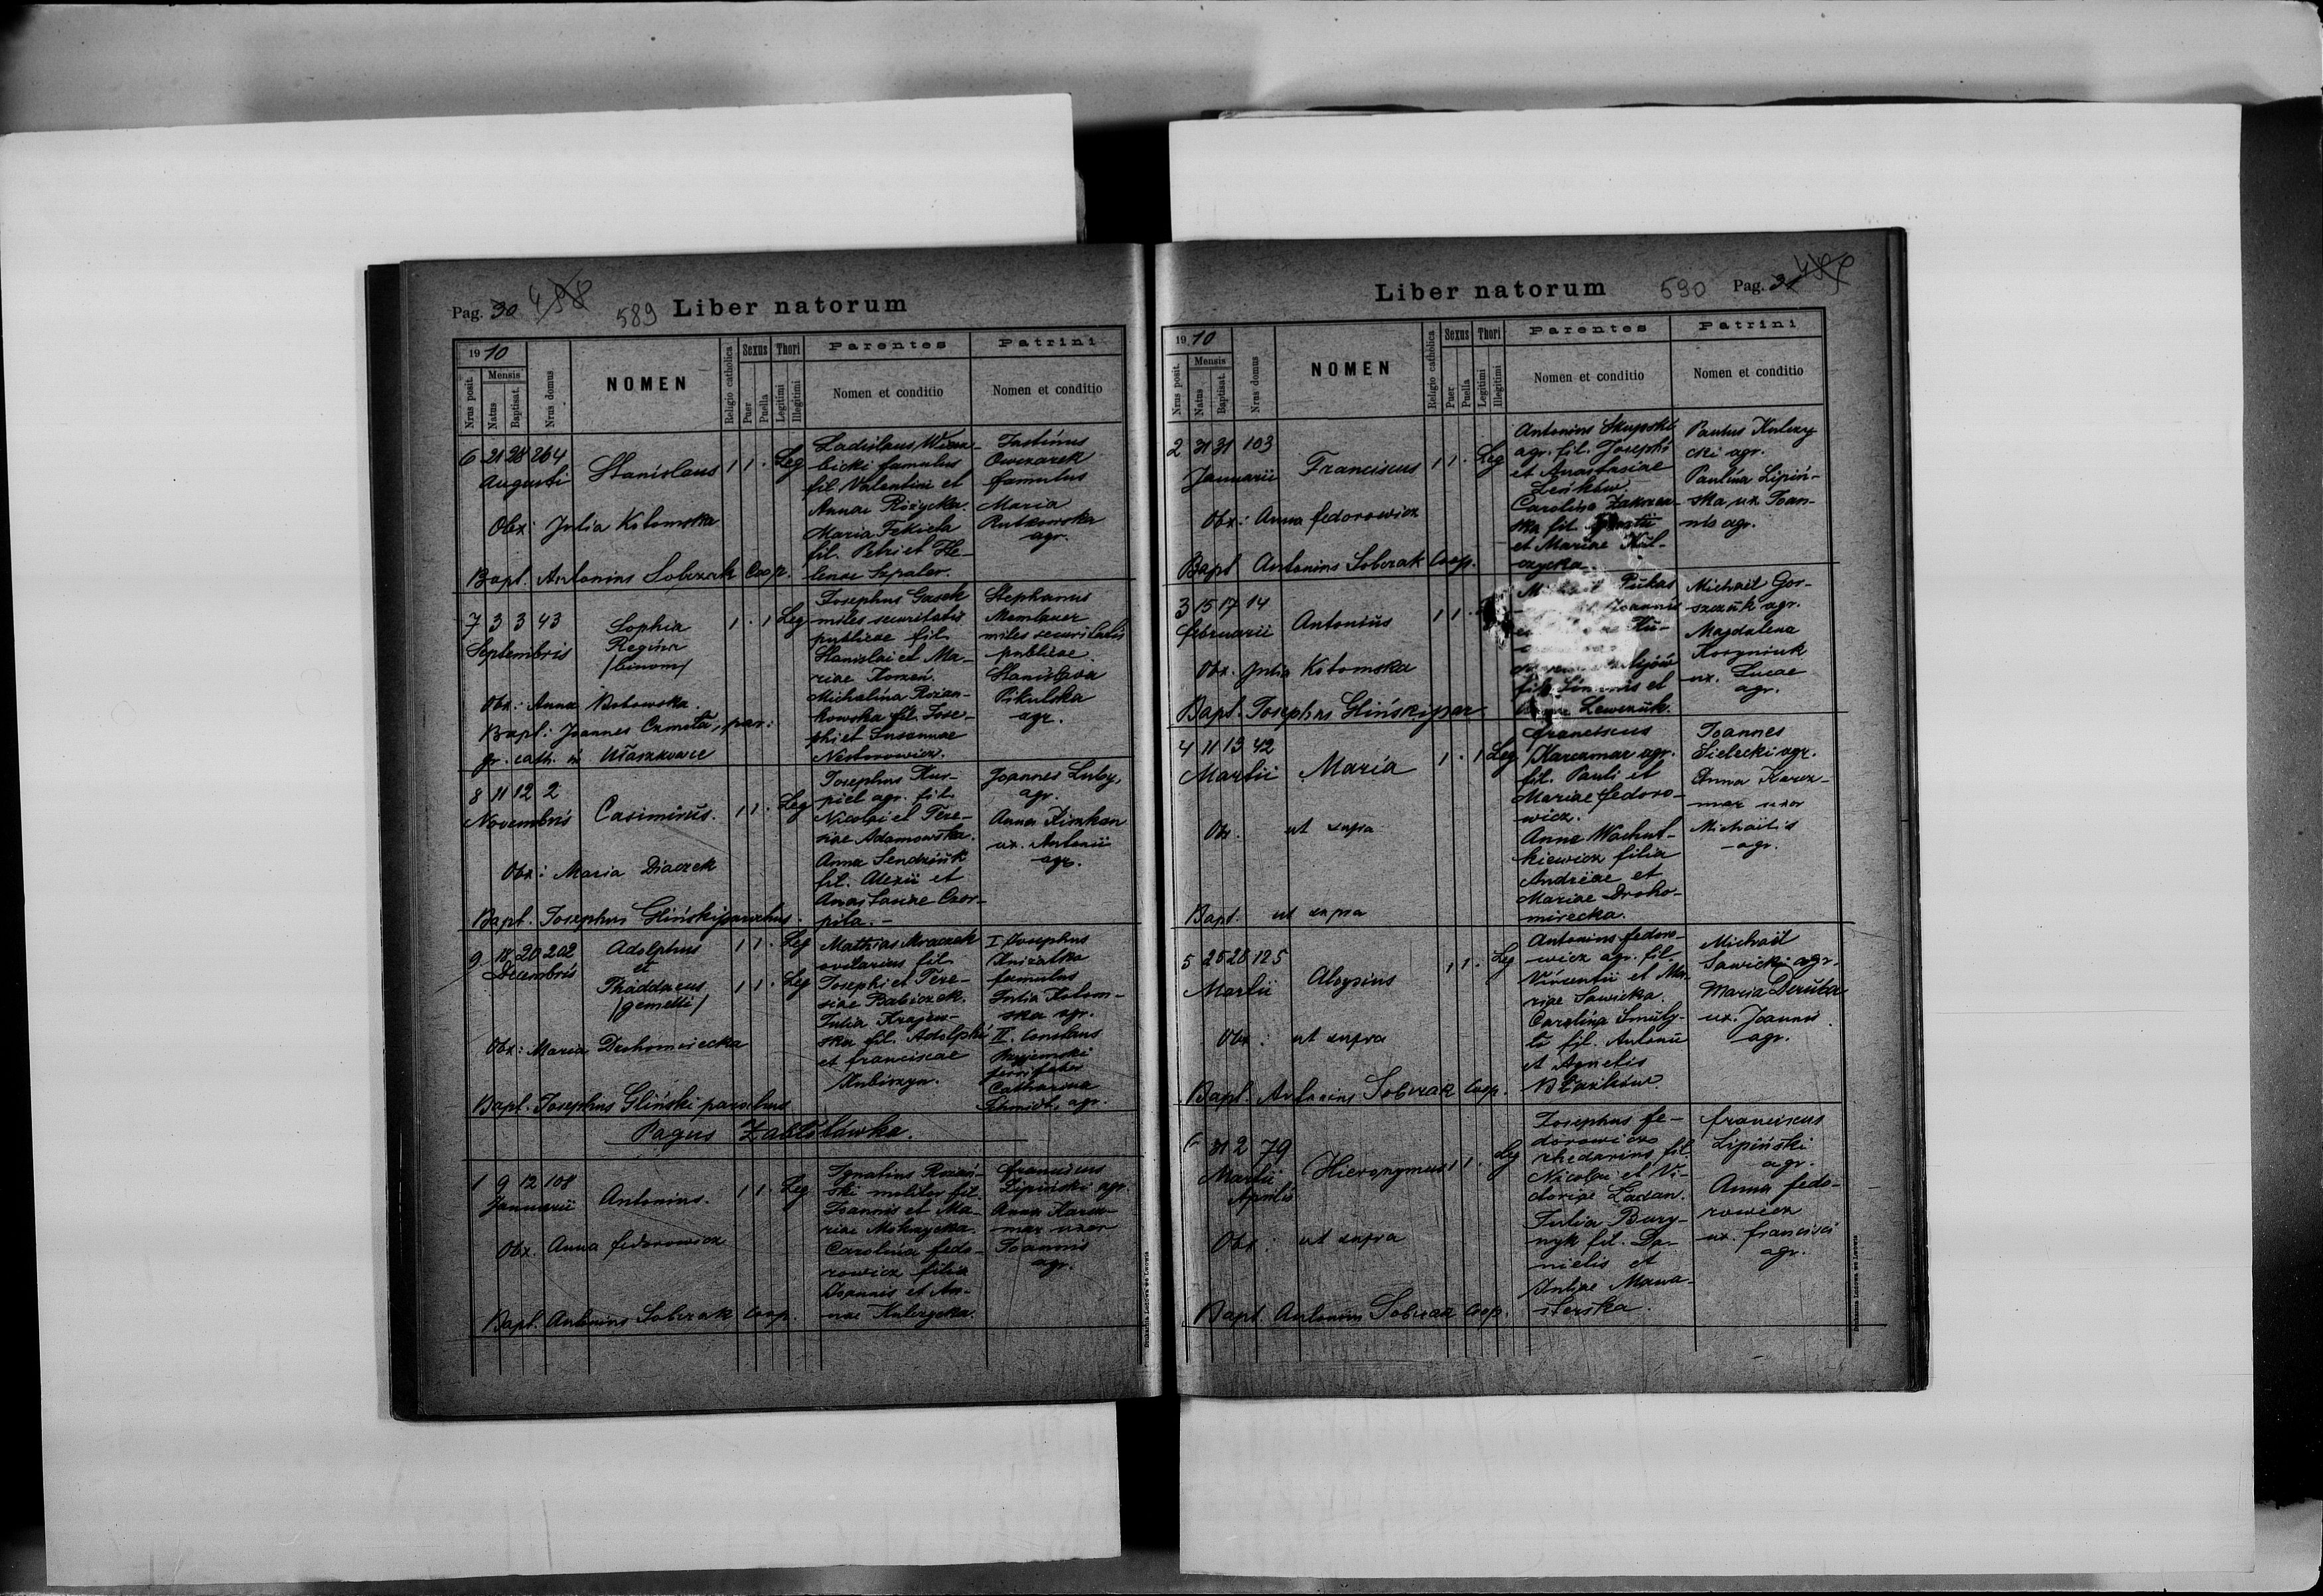 Pag. 30 488 589 Liber natorum
19 10
Nrus posit.
Mensis
Natus
Baptisat.
Nrus domus
NOMEN
Religio catholica
Sexus
Puer
Puella
Thori
Legitimi
Illegitimi
Parentes
Nomen et conditio
Patrini
Nomen et conditio
6 21 28 264
Augusti
Stanislaus 1 1 . Leg
Obx: Julia Kołomska
Bapt. Antonius Sobczak Coop.
Ladislaus
bicki famulus
fil. Valentini et
Annae Różycka.
Maria Fekieta
fil. Petri et He-
lenae Szpaler.
Justinus
Owczarek
famulus
Maria
Rutkowska
agr.
7 3 3 43
Septembris
Sophia
Regina
/binom/
1 . 1 Leg
Obx: Anna Bobowska.
Bapt: Joannes Czmoła, par:
gr. cath. in Ułaszkowce
Josephus Gasek
miles securitatis
publicae fil.
Stanislai et Ma-
riae Komen.
Michalina Rozan-
kowska fil. Jose-
phi et Susannae
Nestorowicz.
Stephanus
Memlauer
miles securitatis
publicae.
Stanislava
Pikulska
agr.
8 11 12 2
Novembris
Casimirus. 1 1 . Leg
Obx: Maria Diaczek
Bapt. Josephus Gliński parochus.
Josephus Kur-
piel agr. fil.
Nicolai et Tere-
siae Adamowska.
Anna Sendziuk
fil. Alexii et
Anastasiae Czor-
pita. -
Joannes Luby,
agr.
Anna Zimhan
ux. Antonii
agr.
9 18 20 202
Decembris
Adolphus 1 1 . Leg
et
Thaddaeus 1 1 . Leg
/gemelli/
Obx: Maria Drohomirecka
Bapt. Josephus Gliński parochus
Mathias Mraczek
ovilarius fil.
Josephi et Tere-
siae Babiczek.
Julia Krajew-
ska fil. Adolphi
et Franciscae
Kubiszyn.
I Josephus
Knizatka
famulus
Julia Kołom-
ska agr.
II. Constans
Przyjemski
ferrifaber
Catharina
Schmidt, agr.
Pagus Zabłotówka.
1 9 12 108
Januarii
Antonius. 1 1 . Leg
Obx. Anna Fedorowicz
Bapt. Antonius Sobczak Coop.
Ignatius Rozań-
ski molitor fil.
Joannis et Ma-
riae Mokrzycka.
Carolina Fedo-
rowicz filia
Joannis et An-
nae Kulczycka.
Franciscus
Lipiński agr.
Anna Karcz-
mar uxor
Joannis
agr.
Drukarnia Ludowa we Lwowie
Liber natorum 590 Pag. 31
19 10
Nrus posit.
Mensis
Natus
Baptisat.
Nrus domus
NOMEN
Religio catholica
Sexus
Puer
Puella
Thori
Legitimi
Illegitimi
Parentes
Nomen et conditio
Patrini
Nomen et conditio
2 31 31 103
Januarii
Franciscus 1 1 . Leg
Obx: Anna Fedorowicz
Bapt Antonius Sobczak Coop.
Antonius Skupski
agr. fil. Josephi
et Anastasiae
Leńków.
Carolina Zakrzew-
ska fil.
et Mariae Kul-
czycka.
Paulus Kulczy
cki agr.
Paulina Lipiń-
ska ux. Joan-
nis agr.
3 15 17 14
Februarii
Antonius 1 1 .
Obx. Julia Kołomska
Bapt. Josephus Gliński par.
Pukas
Joannis
et
fil. Simonis et
Lewczuk.
Michael Gor-
szczuk agr.
Magdalena
Korzyniuk
ux. Lucae
agr.
4 11 13 42
Martii
Maria 1 . 1 Leg
Obx. ut supra
Bapt. ut supra
Franciscus
Karczmar agr.
fil. Pauli et
Mariae Fedoro-
wicz.
Anna Wachul-
kiewicz filia
Andreae et
Mariae Droho-
mirecka.
Joannes
Sielecki agr.
Anna Karcz-
mar uxor
Michaelis
agr.
5 25 28 125
Martii
Aloysius 1 1 . Leg
Obx: ut supra
Bapt. Antonius Sobczak Coop.
Antonius Fedoro-
wicz agr. fil.
Vincentii et Ma-
riae Sawicka.
Carolina Smuły-
ło fil. Antonii
et Agnetis
Błażków.
Michael
Sawicki agr.
Maria Deruba
ux. Joannis
agr.
6 31 2 79
Martii
Aprilis
Hieronymus 1 1 . Leg
Obx: ut supra
Bapt. Antonius Sobczak Coop.
Josephus Fe-
dorowicz
rhedarius fil.
Nicolai et Vi-
ctoriae Ladan.
Julia Bury-
nyk fil. Da-
nielis et
Juliae Mana-
sterska.
Franciscus
Lipiński
agr.
Anna Fedo-
rowicz
ux. Francisci
agr.
Drukarnia Ludowa we Lwowie